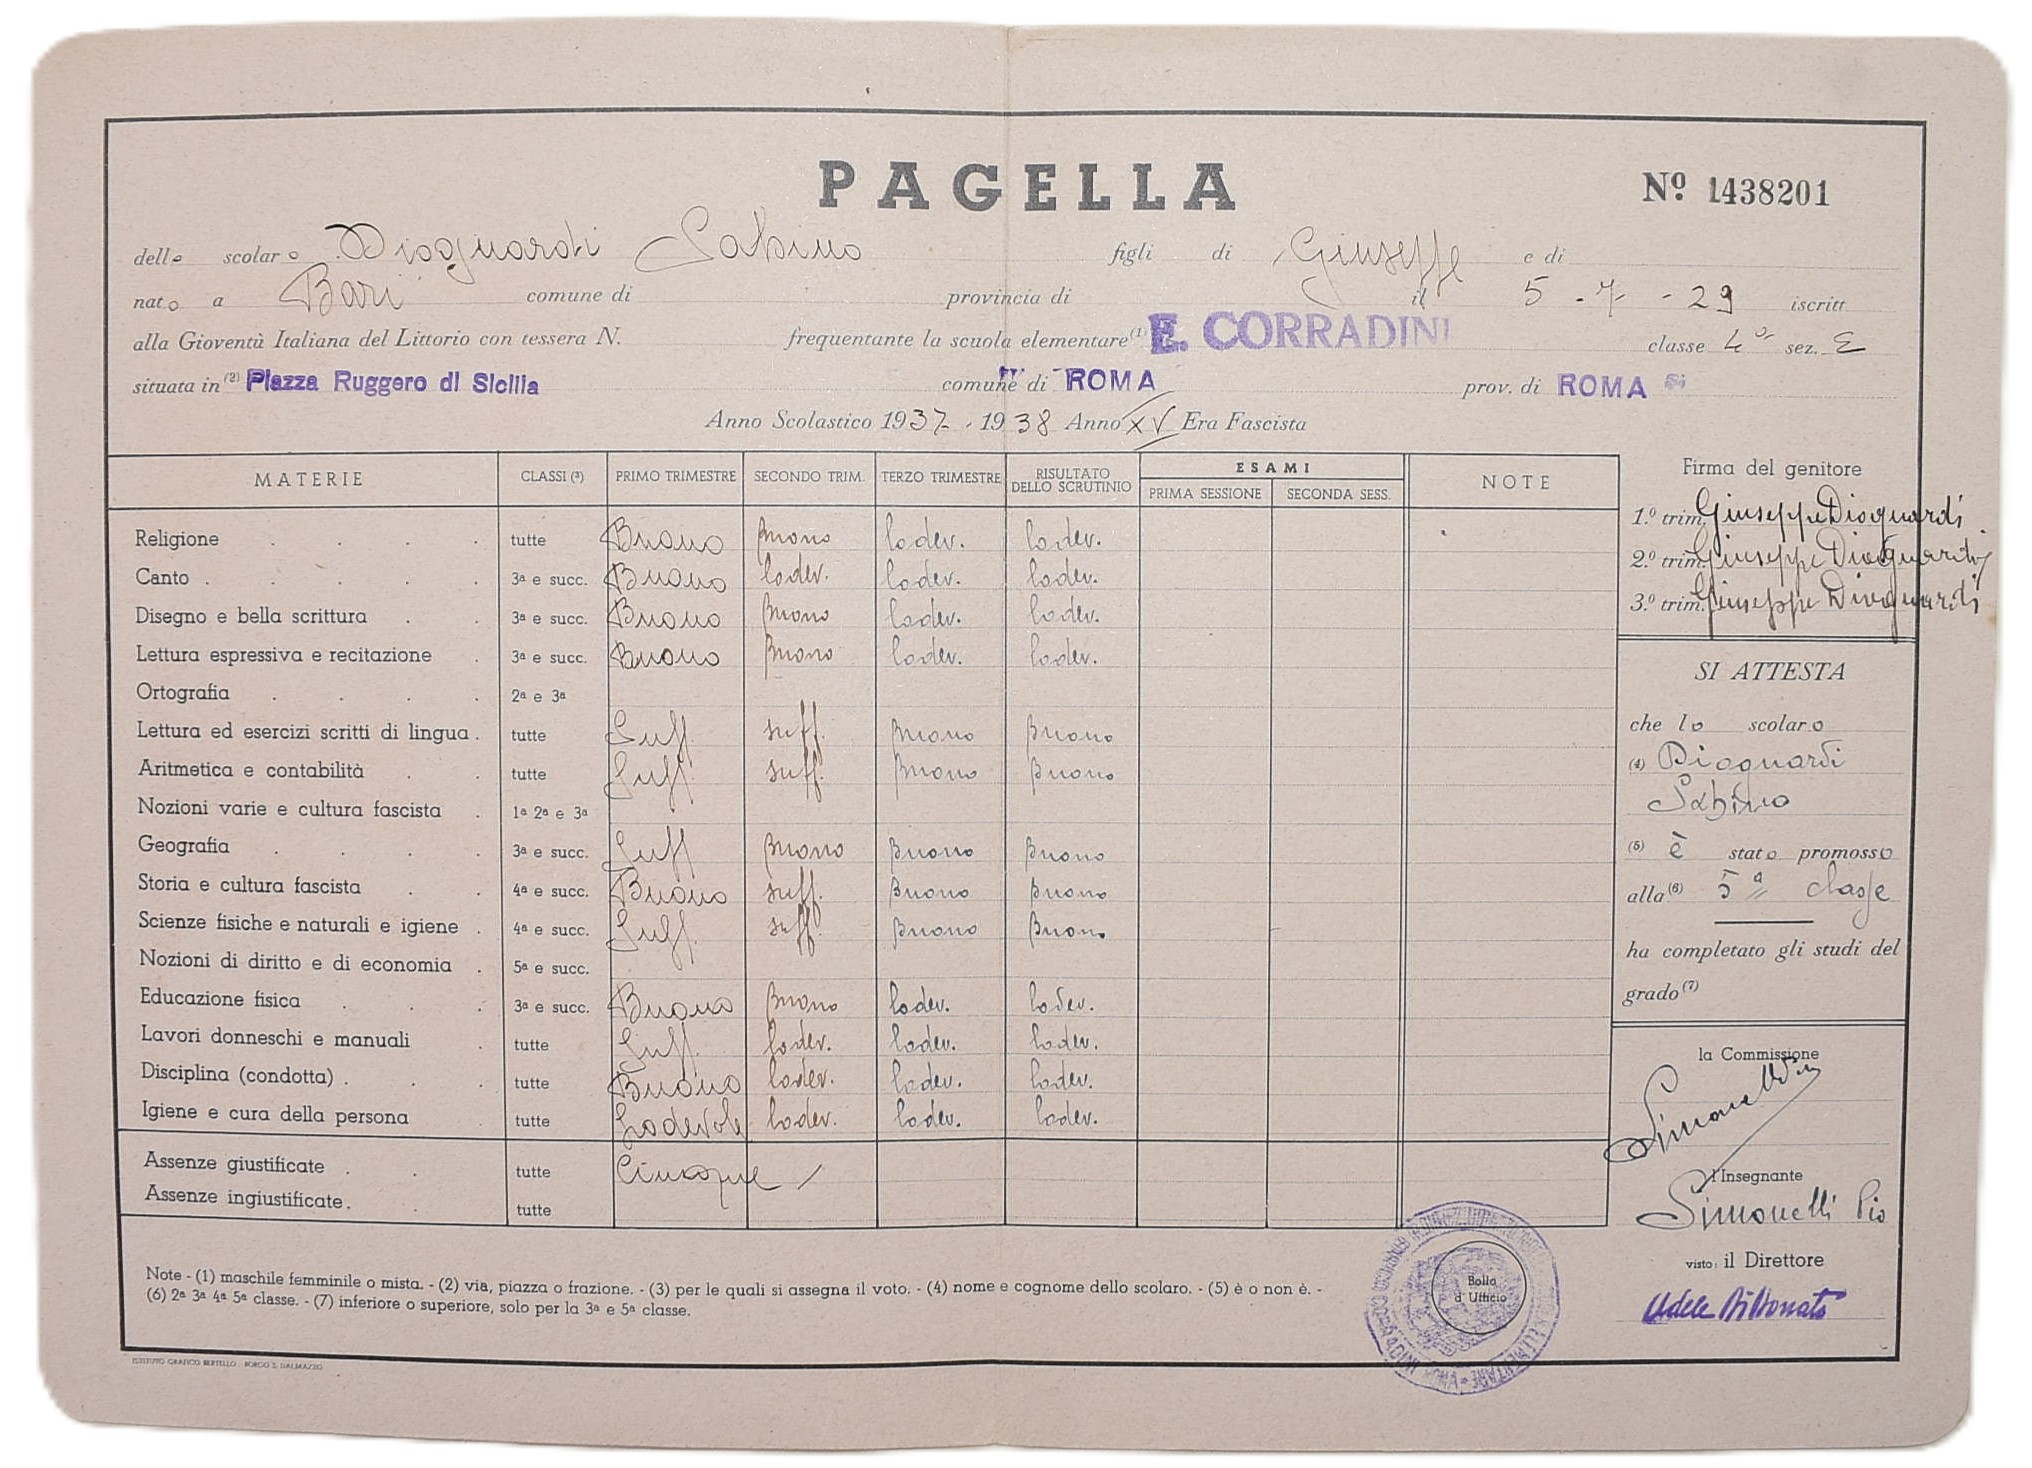 PAGELLA
Nº 1438201
dello scolaro Dioguardi Sabino figli di Giuseppe e di
nato a Bari comune di provincia di il 5-7-29 iscritt
alla Gioventù Italiana del Littorio con tessera N. frequentante la scuola elementare (1) E. CORRADINI classe 4ª sez. E
situata in (2) Piazza Ruggero di Sicilia comune di ROMA prov. di ROMA
Anno Scolastico 1937-1938 Anno XV Era Fascista
MATERIE CLASSI (3) PRIMO TRIMESTRE SECONDO TRIM. TERZO TRIMESTRE RISULTATO DELLO SCRUTINIO ESAMI PRIMA SESSIONE SECONDA SESS. NOTE
Religione . . . . tutte Buono Buono lodev. lodev.
Canto . . . . . 3ª e succ. Buono lodev. lodev. lodev.
Disegno e bella scrittura . . 3ª e succ. Buono Buono lodev. lodev.
Lettura espressiva e recitazione . 3ª e succ. Buono Buono lodev. lodev.
Ortografia . . . . 2ª e 3ª
Lettura ed esercizi scritti di lingua . tutte Suff. suff. Buono Buono
Aritmetica e contabilità . . tutte Suff. suff. Buono Buono
Nozioni varie e cultura fascista . 1ª 2ª e 3ª
Geografia . . . . 3ª e succ. Suff Buono Buono Buono
Storia e cultura fascista . . 4ª e succ. Buono suff. Buono Buono
Scienze fisiche e naturali e igiene . 4ª e succ. Suff. suff. Buono Buono
Nozioni di diritto e di economia . 5ª e succ.
Educazione fisica . . . 3ª e succ. Buono Buono lodev. lodev.
Lavori donneschi e manuali . tutte Suff. lodev. lodev. lodev.
Disciplina (condotta) . . . tutte Buono lodev. lodev. lodev.
Igiene e cura della persona . tutte Lodevole lodev. lodev. lodev.
Assenze giustificate . . tutte Cinque /
Assenze ingiustificate . . tutte
Firma del genitore
1.º trim. Giuseppe Dioguardi
2.º trim. Giuseppe Dioguardi
3.º trim. Giuseppe Dioguardi
SI ATTESTA
che lo scolaro
(4) Dioguardi
Sabino
(5) è stato promosso
alla (6) 5ª classe
ha completato gli studi del
grado (7)
la Commissione
Simonelli Pio
l'Insegnante
Simonelli Pio
visto: il Direttore
Adele Di Donato
Bollo
d'Ufficio
Note - (1) maschile femminile o mista. - (2) via, piazza o frazione. - (3) per le quali si assegna il voto. - (4) nome e cognome dello scolaro. - (5) è o non è. -
(6) 2ª 3ª 4ª 5ª classe. - (7) inferiore o superiore, solo per la 3ª e 5ª classe.
ISTITUTO GRAFICO BERTELLO - BORGO S. DALMAZZO